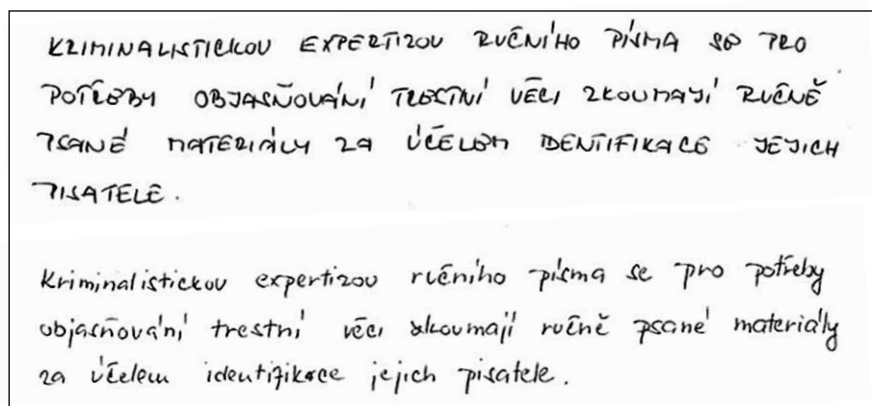 KRIMINALISTICKOU EXPERTIZOU RUČNÍHO PÍSMA SE PRO
POTŘEBY OBJASŇOVÁNÍ TRESTNÍ VĚCI ZKOUMAJÍ RUČNĚ
PSANÉ MATERIÁLY ZA ÚČELEM IDENTIFIKACE JEJICH
PISATELE.
Kriminalistickou expertizou ručního písma se pro potřeby
objasňování trestní věci zkoumají ručně psané materiály
za účelem identifikace jejich pisatele.